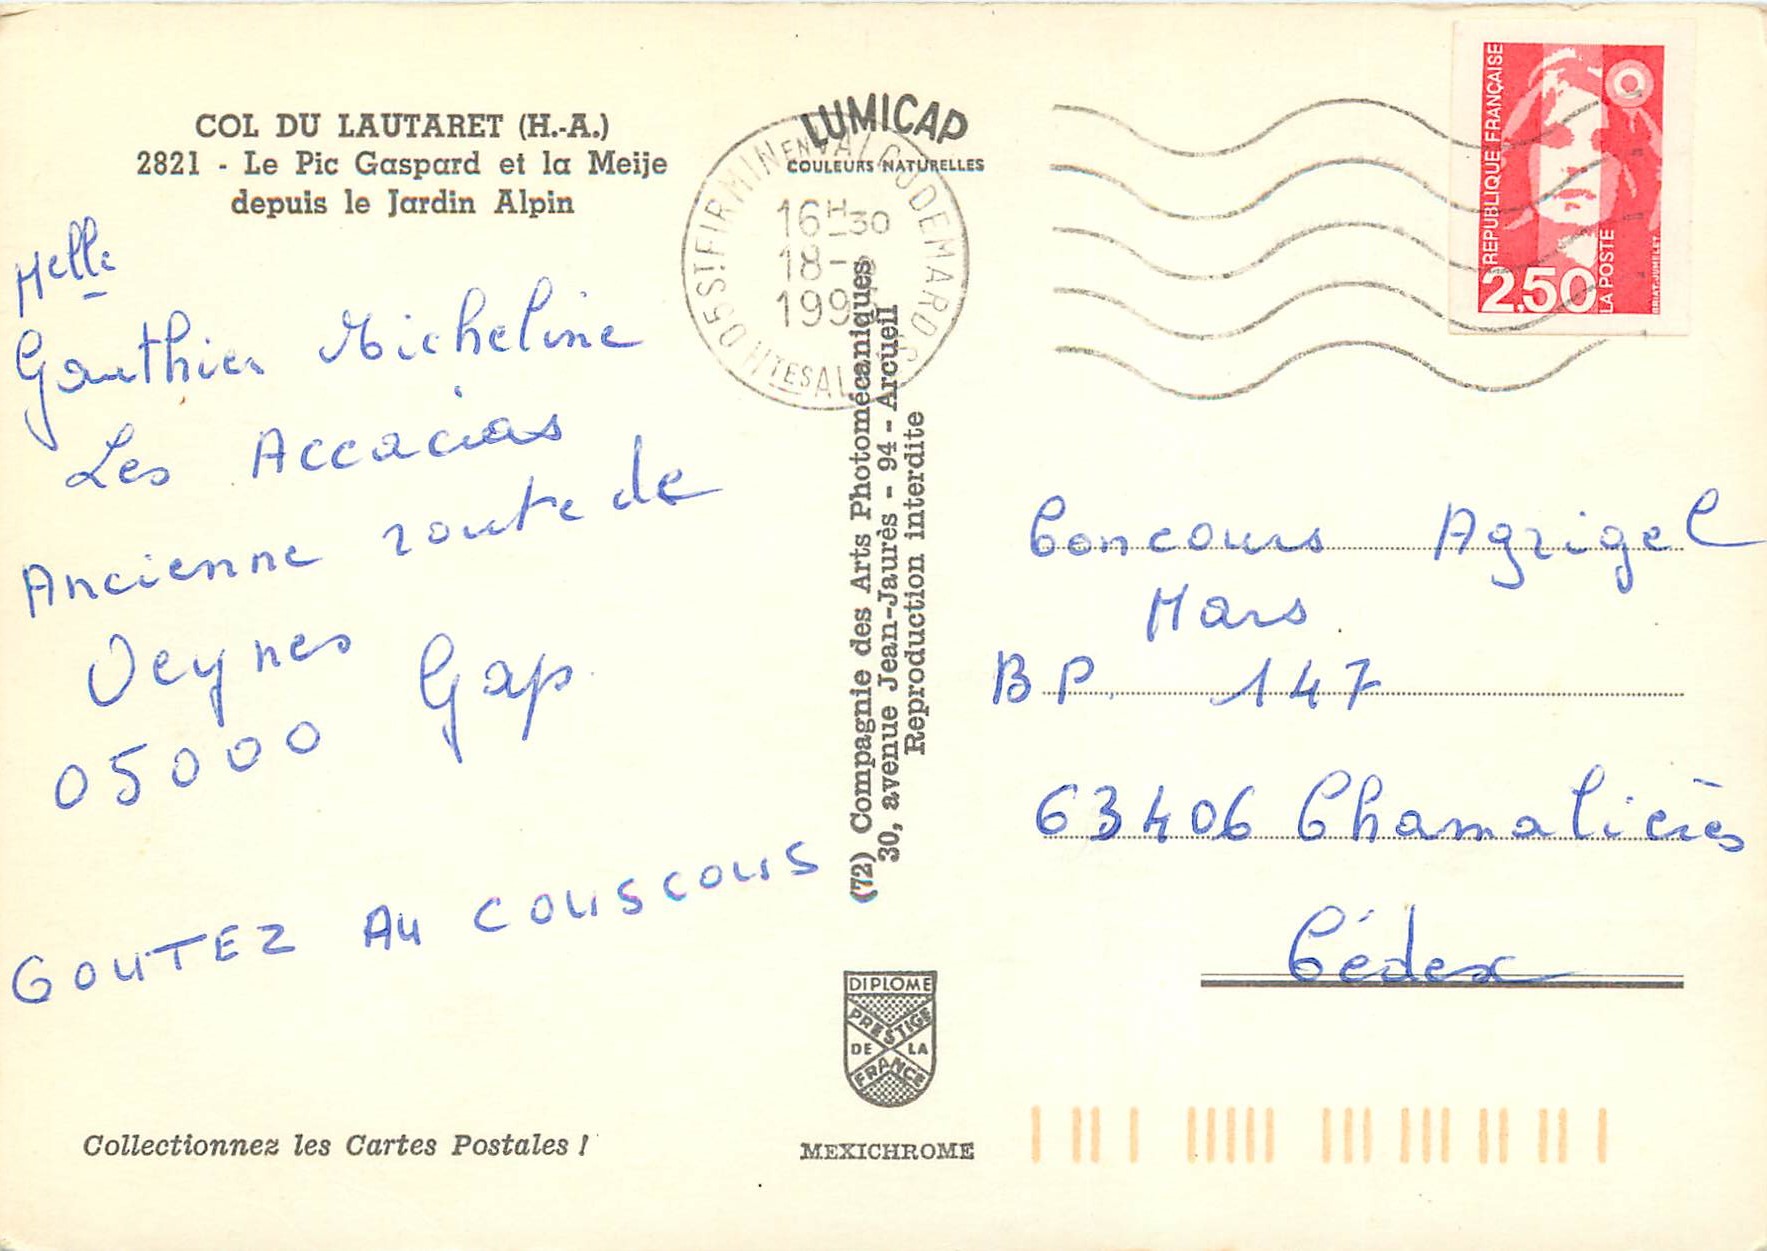 COL DU LAUTARET (H.-A.)
2821 - Le Pic Gaspard et la Meije
depuis le Jardin Alpin
Melle
Gauthier Micheline
Les Accacias
Ancienne route de
Veynes
05000 Gap
GOUTEZ AU COUSCOUS
Collectionnez les Cartes Postales !
LUMICAP
COULEURS NATURELLES
05 ST FIRMIN EN VALGODEMARD
HTES AL
16H30
18-
199
(72) Compagnie des Arts Photomécaniques
30, avenue Jean-Jaurès - 94 - Arcueil
Reproduction interdite
DIPLOME
PRESTIGE
DE LA
FRANCE
MEXICHROME
REPUBLIQUE FRANÇAISE
2,50
LA POSTE
BRIAT-JUMELET
Concours Agrigel
Mars
BP. 147
63406 Chamalières
Cédex